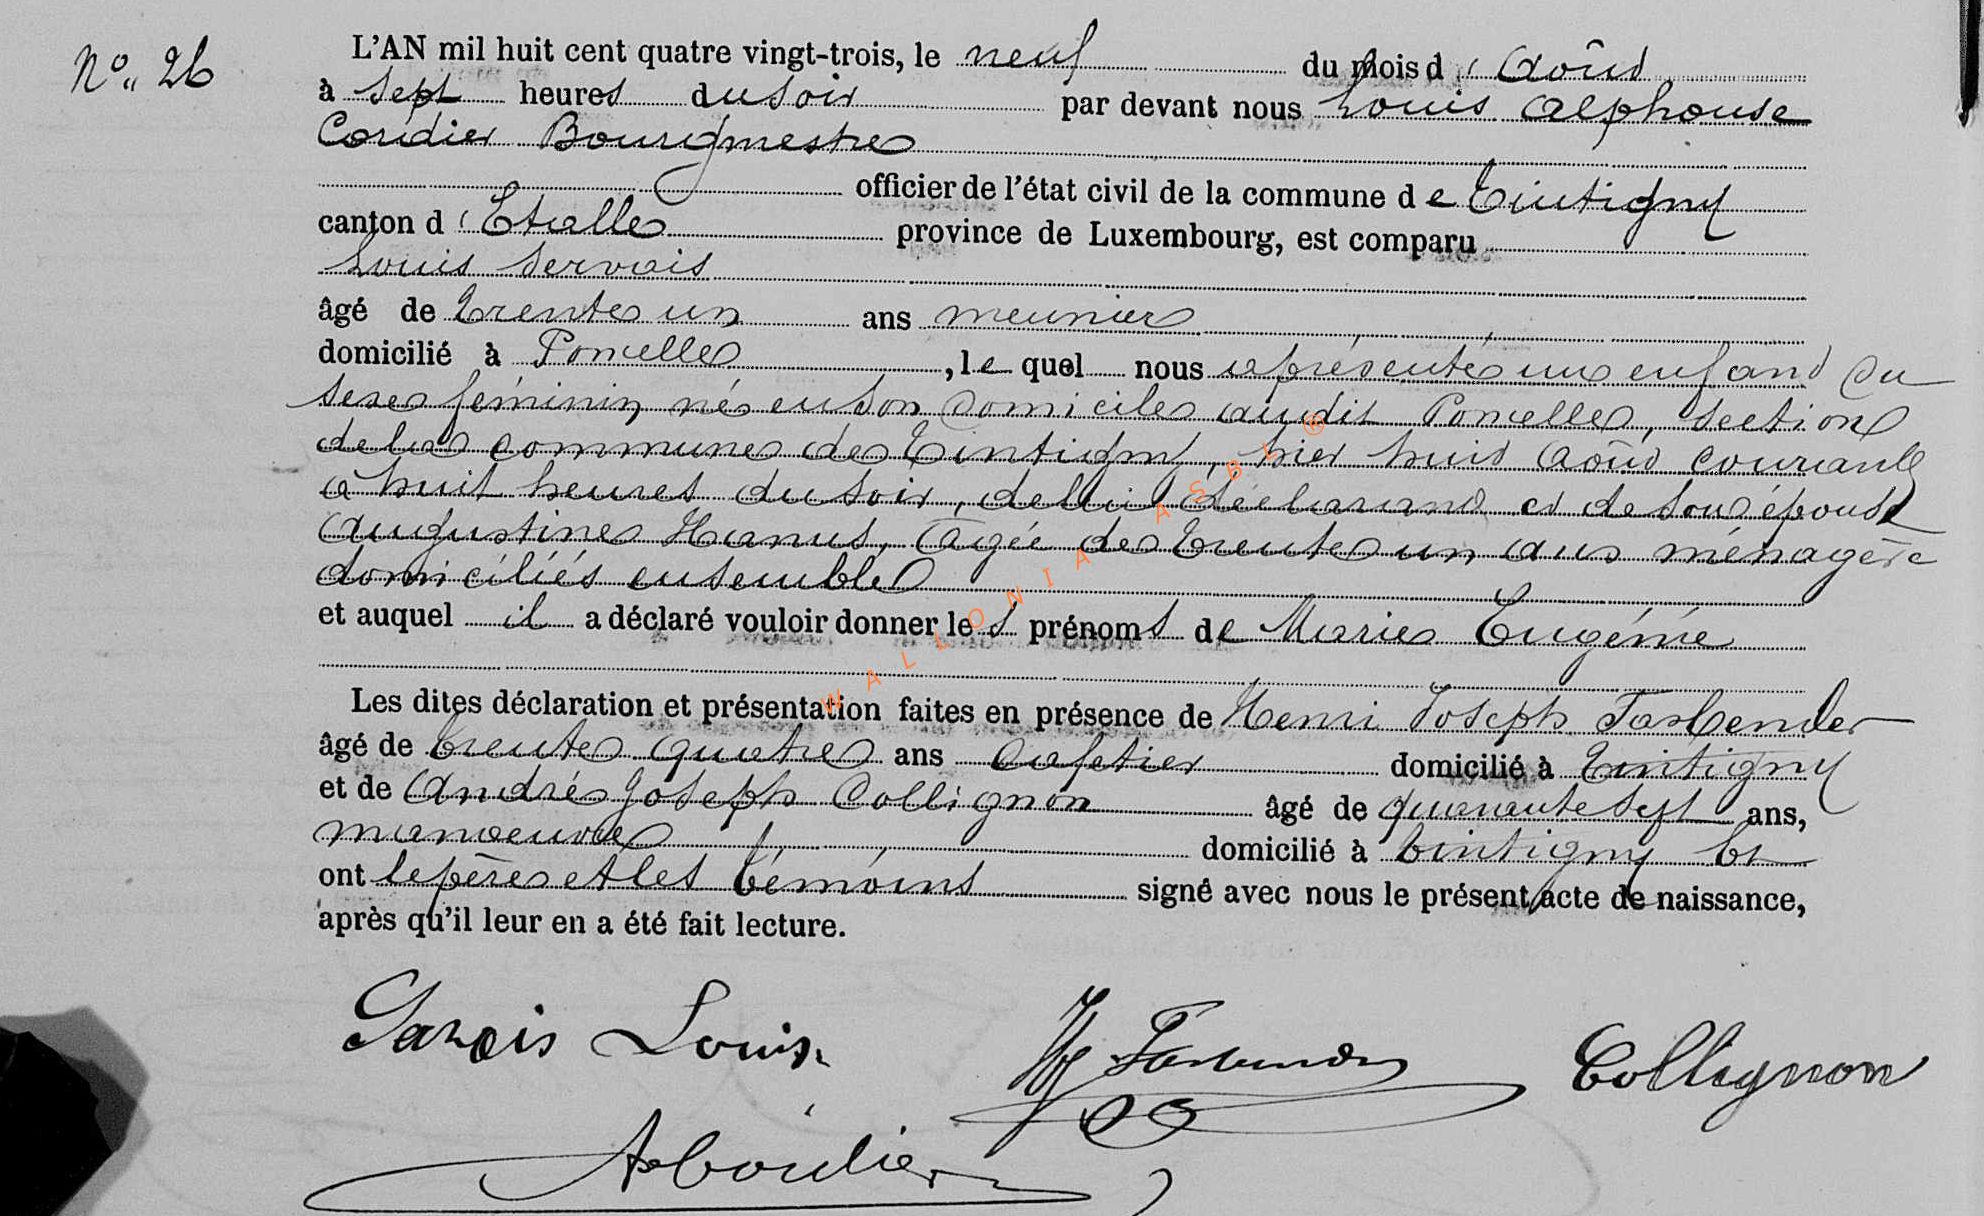 N° 26
L'AN mil huit cent quatre vingt-trois, le neuf du mois d'Aoûs
à sept heures du soir par devant nous Louis Alphonse
Cordier Bourgmestre
officier de l'état civil de la commune de Tintigny
canton d'Etalle province de Luxembourg, est comparu
Louis Servais
âgé de trente un ans meunier
domicilié à Poncelle, le quel nous a présenté un enfant du
sexe féminin né en son domicile audit Poncelle, section
de la commune de Tintigny, hier huit Aoûs courant
à huit heures du soir, de lui déclarant et de son épouse
Augustine Hanus, âgée de trente un ans ménagère
domiciliés ensemble
et auquel il a déclaré vouloir donner les prénoms de Marie Eugénie
Les dites déclaration et présentation faites en présence de Henri Joseph Fasbender
âgé de trente quatre ans cafetier domicilié à Tintigny
et de André Joseph Collignon âgé de quarante sept ans,
manoeuvre domicilié à Tintigny Et
ont le père et les témoins signé avec nous le présent acte de naissance,
après qu'il leur en a été fait lecture.
Servais Louis H Fasbender Collignon
WALLONIA ASBL ®